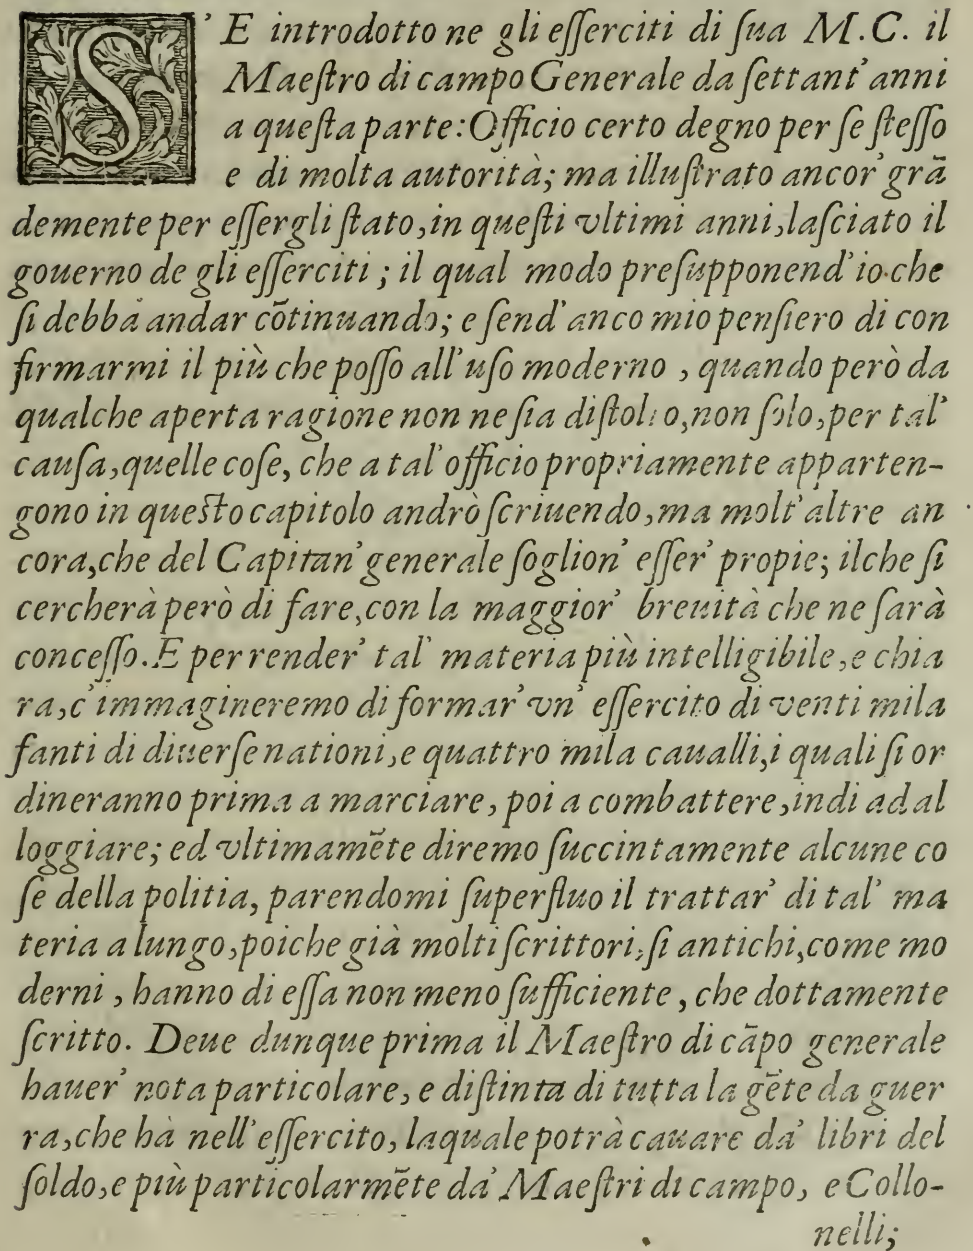 S’E introdotto ne gli eſſerciti di ſua M.C. il
Maeſtro di campo Generale da ſettant’anni
a queſta parte: Officio certo degno per ſe ſteſſo
e di molta autorità; ma illuſtrato ancor’ grā
demente per eſſergli ſtato, in queſti vltimi anni, laſciato il
gouerno de gli eſſerciti; il qual modo preſupponend’io che
ſi debba andar cōtinuando; e ſend’anco mio penſiero di con
firmarmi il più che poſſo all’uſo moderno, quando però da
qualche aperta ragione non ne ſia diſtolto, non ſolo, per tal’
cauſa, quelle coſe, che a tal’officio propriamente apparten-
gono in queſto capitolo andrò ſcriuendo, ma molt’altre an
cora, che del Capitan’ generale ſoglion’ eſſer’ propie; ilche ſi
cercherà però di fare, con la maggior’ breuità che ne ſarà
conceſſo. E per render’ tal’ materia più intelligibile, e chia
ra, c’immagineremo di formar’ vn’ eſſercito di venti mila
fanti di diuerſe nationi, e quattro mila caualli, i quali ſi or
dineranno prima a marciare, poi a combattere, indi ad al
loggiare; ed vltimamēte diremo ſuccintamente alcune co
ſe della politia, parendomi ſuperfluo il trattar’ di tal’ ma
teria a lungo, poiche già molti ſcrittori, ſi antichi, come mo
derni, hanno di eſſa non meno ſufficiente, che dottamente
ſcritto. Deue dunque prima il Maeſtro di cāpo generale
hauer’ nota particolare, e diſtinta di tutta la gēte da guer
ra, che hà nell’eſſercito, laquale potrà cauare da’ libri del
ſoldo, e più particolarmēte da’ Maeſtri di campo, e Collo-
nelli;